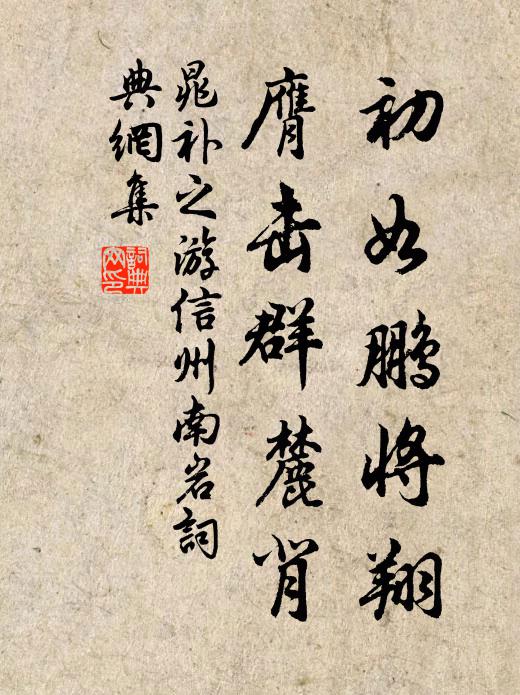 初如鹏将翔
膺击群麓背
晁补之游信州南岩词
典網集
詞典
网印